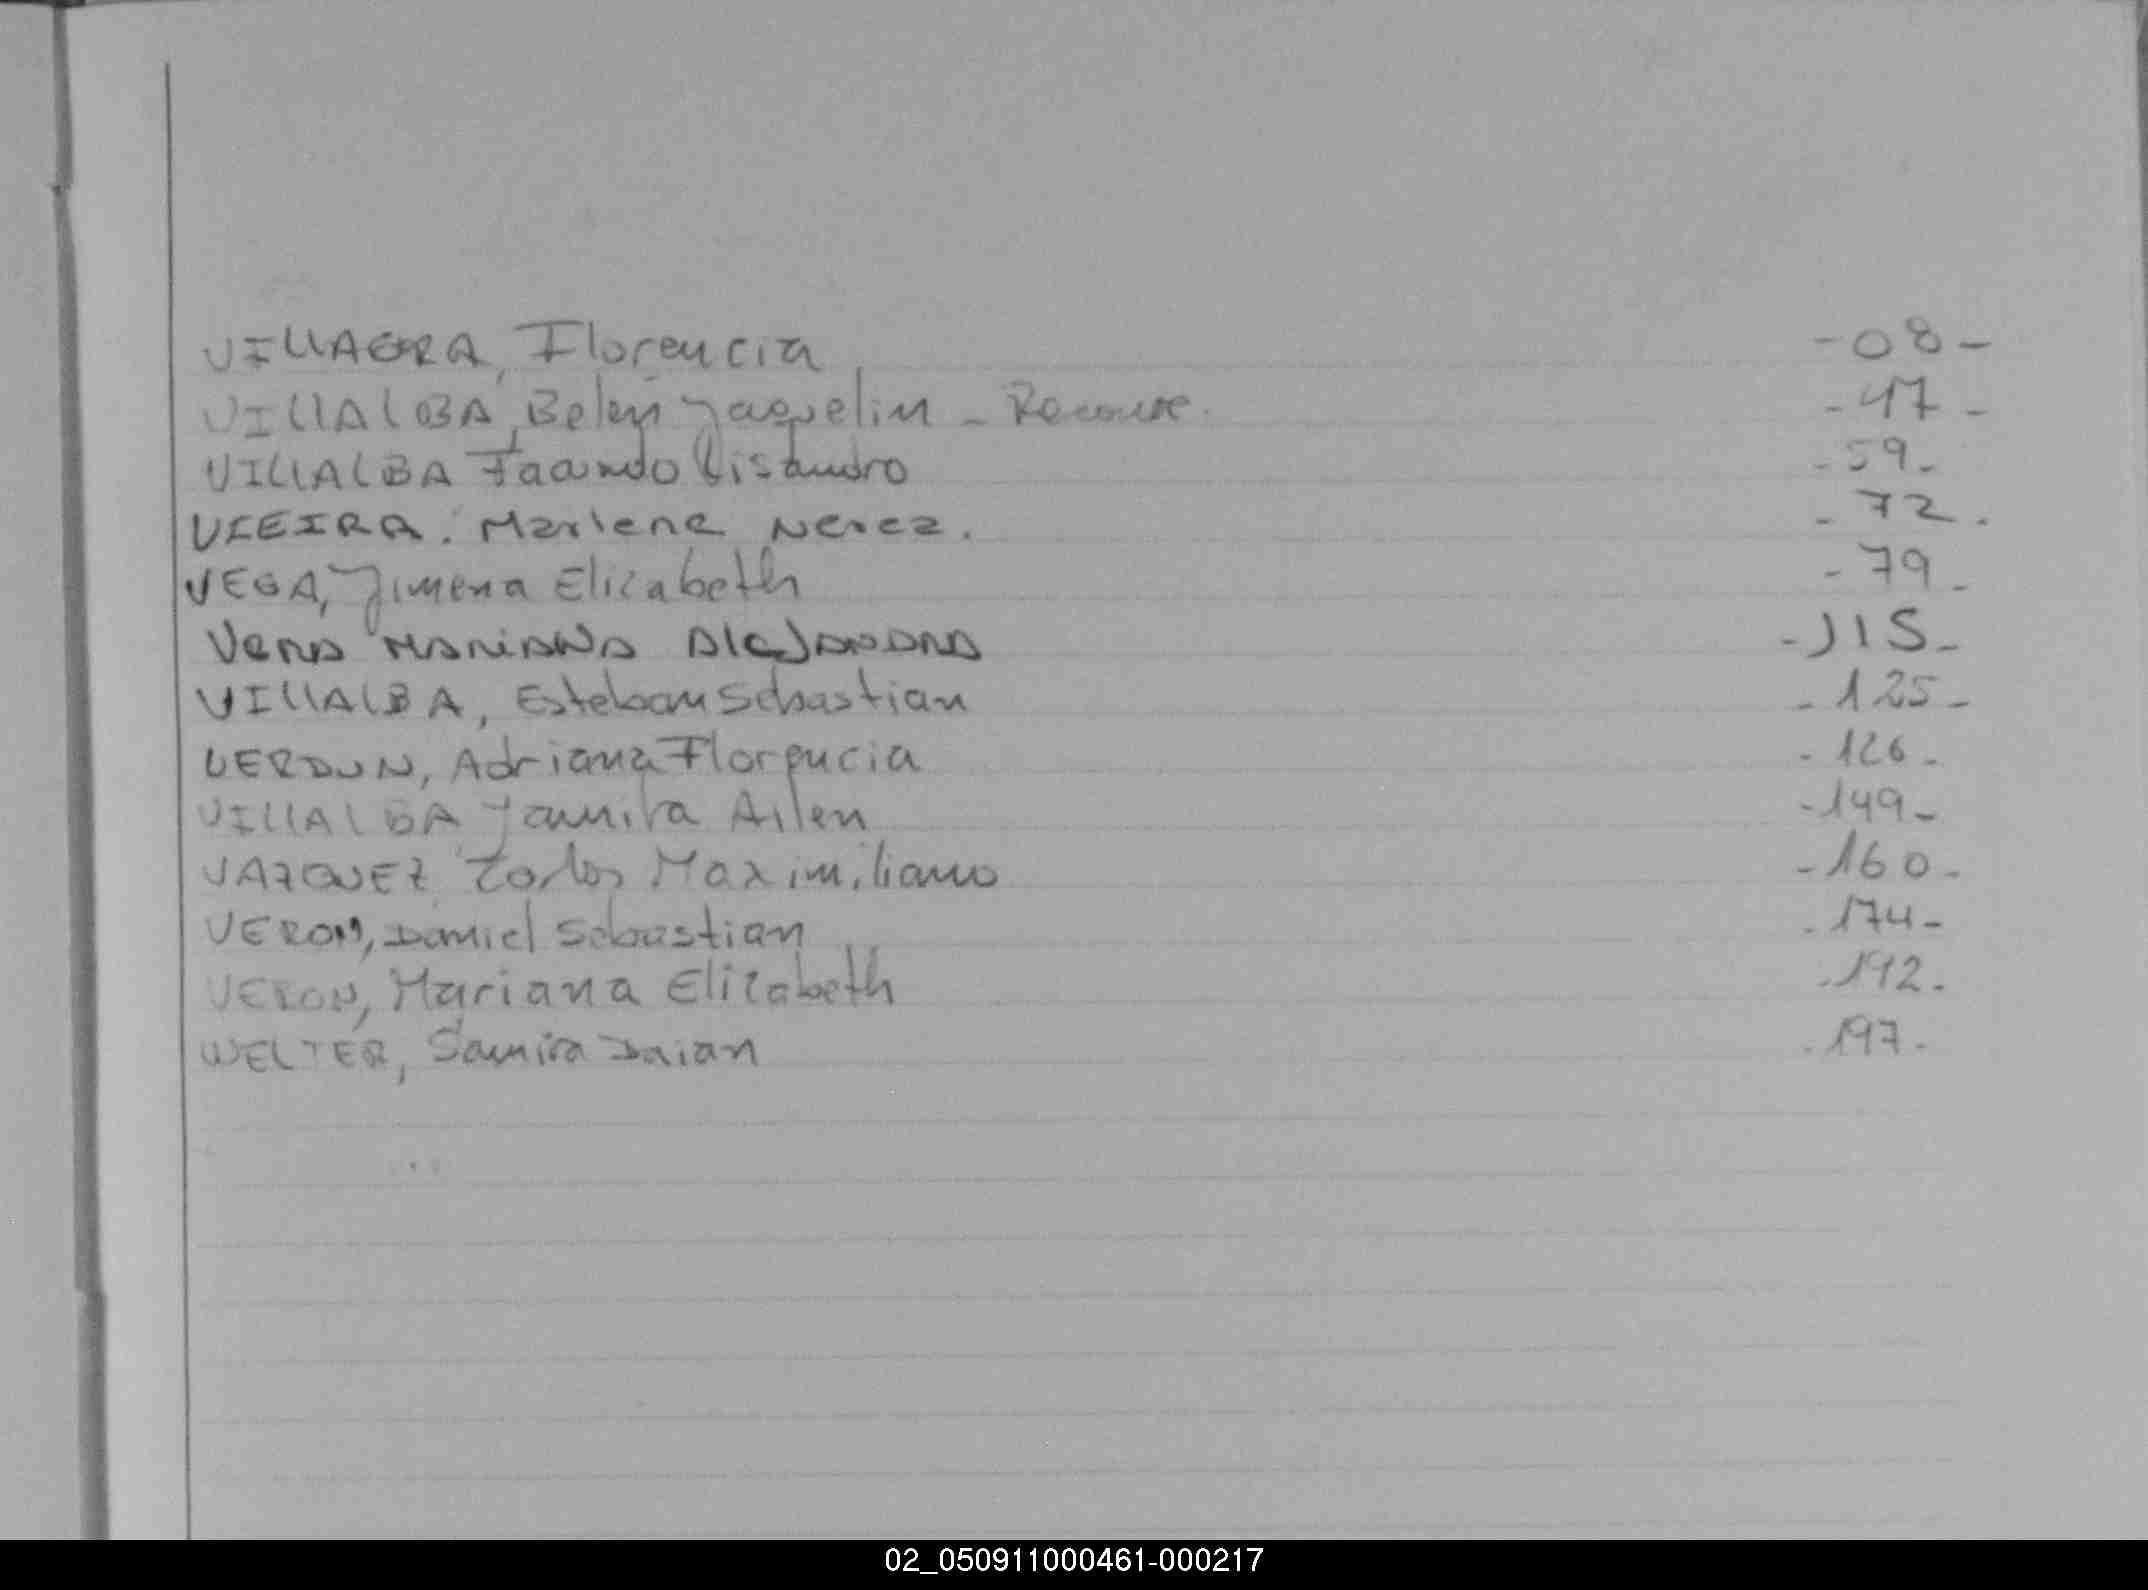 VILLAGRA, Florencia -08-
VILLALBA, Belen Jaquelin - Reconoc. -47-
VILLALBA Facundo Lisandro -59-
VIEIRA. Marlene Nerea. -72.
VEGA, Jimena Elizabeth -79-
Vera Mariana Alejandra -115-
VILLALBA, Esteban Sebastian -125-
VERDUN, Adriana Florencia -126-
VILLALBA Jamila Ailen -149-
VAZQUEZ Carlos Maximiliano -160-
VERON, Daniel Sebastian -174-
VERON, Mariana Elizabeth -192-
WELTER, Samira Daian -197-
02_050911000461-000217